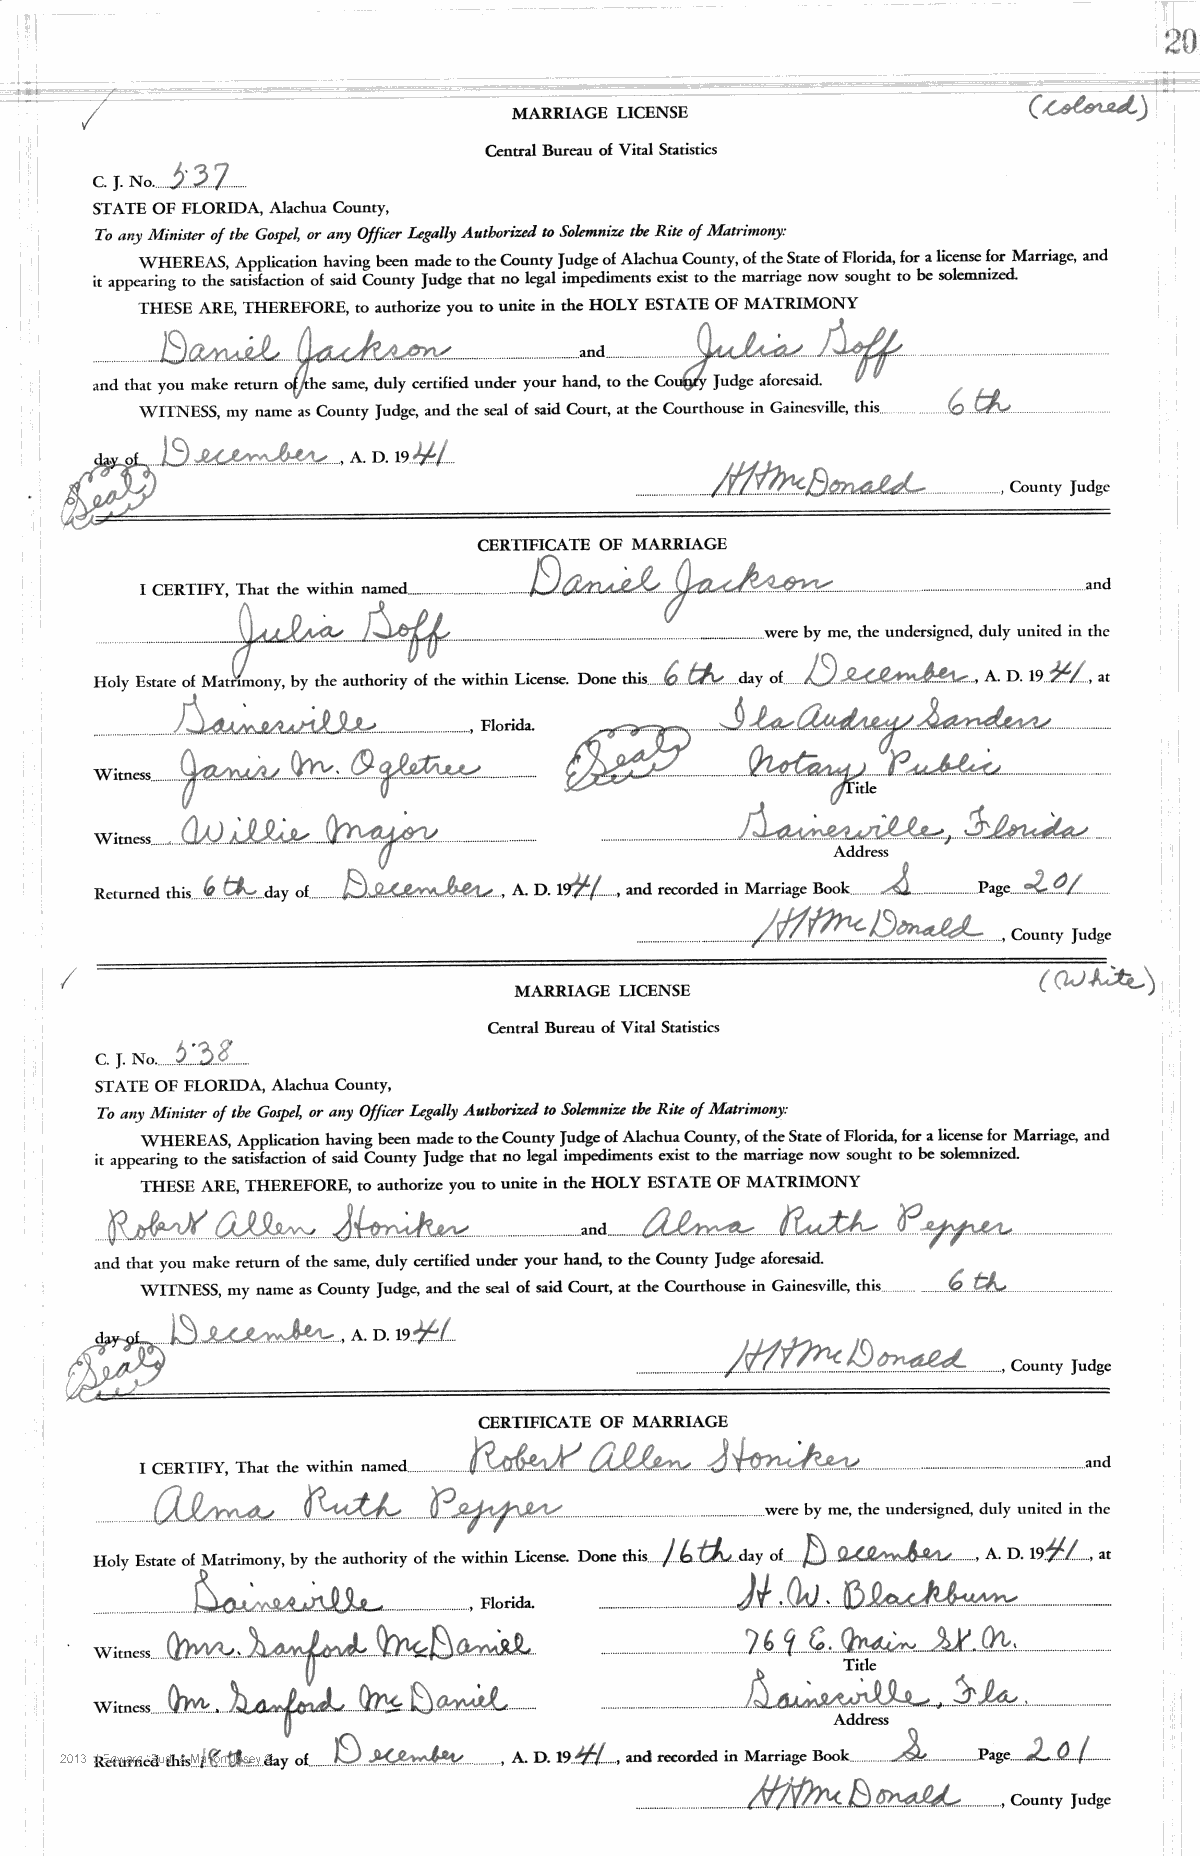 20
MARRIAGE LICENSE (Colored)
Central Bureau of Vital Statistics
C. J. No. 537
STATE OF FLORIDA, Alachua County,
To any Minister of the Gospel, or any Officer Legally Authorized to Solemnize the Rite of Matrimony:
WHEREAS, Application having been made to the County Judge of Alachua County, of the State of Florida, for a license for Marriage, and
it appearing to the satisfaction of said County Judge that no legal impediments exist to the marriage now sought to be solemnized.
THESE ARE, THEREFORE, to authorize you to unite in the HOLY ESTATE OF MATRIMONY
Daniel Jackson and Julia Goff
and that you make return of the same, duly certified under your hand, to the County Judge aforesaid.
WITNESS, my name as County Judge, and the seal of said Court, at the Courthouse in Gainesville, this 6th
day of December, A. D. 1941
Seal HHMcDonald, County Judge
CERTIFICATE OF MARRIAGE
I CERTIFY, That the within named Daniel Jackson and
Julia Goff were by me, the undersigned, duly united in the
Holy Estate of Matrimony, by the authority of the within License. Done this 6th day of December, A. D. 1941, at
Gainesville, Florida. Ila Audrey Sanders
Witness Janis M. Ogletree Seal Notary Public
Title
Witness Willie Major Gainesville, Florida
Address
Returned this 6th day of December, A. D. 1941, and recorded in Marriage Book S Page 201
HHMcDonald, County Judge
MARRIAGE LICENSE (White)
Central Bureau of Vital Statistics
C. J. No. 538
STATE OF FLORIDA, Alachua County,
To any Minister of the Gospel, or any Officer Legally Authorized to Solemnize the Rite of Matrimony:
WHEREAS, Application having been made to the County Judge of Alachua County, of the State of Florida, for a license for Marriage, and
it appearing to the satisfaction of said County Judge that no legal impediments exist to the marriage now sought to be solemnized.
THESE ARE, THEREFORE, to authorize you to unite in the HOLY ESTATE OF MATRIMONY
Robert Allen Honiker and Alma Ruth Pepper
and that you make return of the same, duly certified under your hand, to the County Judge aforesaid.
WITNESS, my name as County Judge, and the seal of said Court, at the Courthouse in Gainesville, this 6th
day of December, A. D. 1941
Seal HHMcDonald, County Judge
CERTIFICATE OF MARRIAGE
I CERTIFY, That the within named Robert Allen Honiker and
Alma Ruth Pepper were by me, the undersigned, duly united in the
Holy Estate of Matrimony, by the authority of the within License. Done this 16th day of December, A. D. 1941, at
Gainesville, Florida. H. W. Blackburn
Witness Mrs. Sanford McDaniel 769 E. Main St. N.
Title
Witness Mr. Sanford McDaniel Gainesville, Fla.
Address
2013 Returned this 18th day of December, A. D. 1941, and recorded in Marriage Book S Page 201
HHMcDonald, County Judge